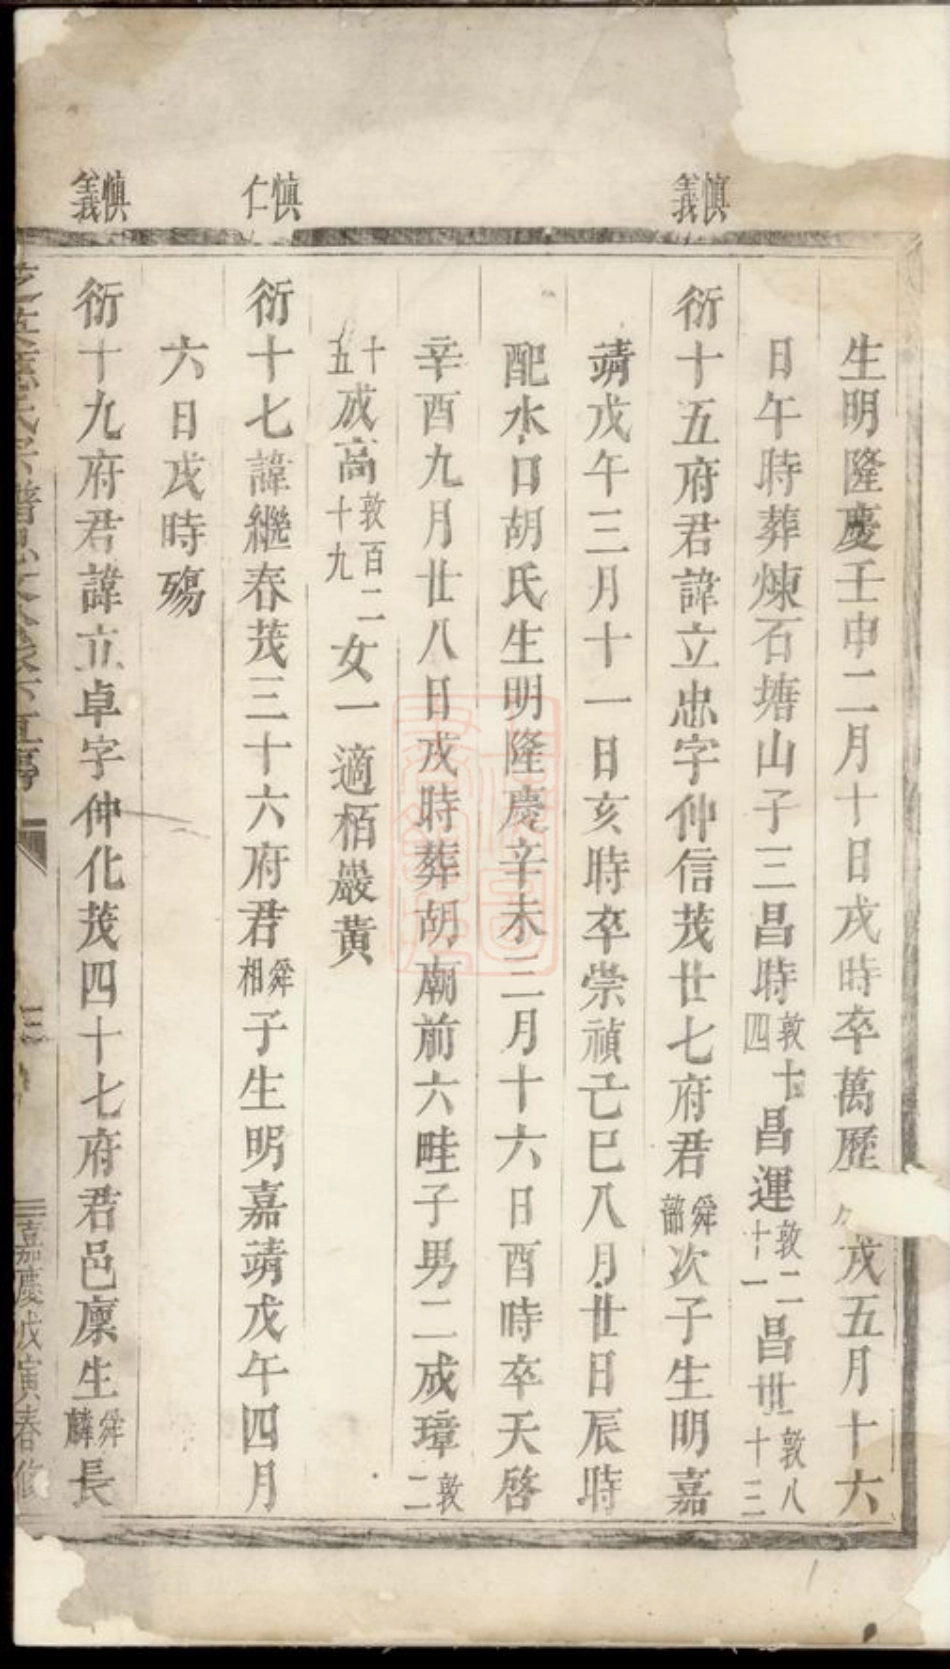 生明隆慶壬申二月十日戌時卒萬歷戌五月十六
日午時葬煉石塘山子三昌時敦十四昌運敦二十一昌世敦八十三
慎義
衍十五府君諱立忠字仲信茂廿七府君舜韶次子生明嘉
靖戊午三月十一日亥時卒崇禎己巳八月廿日辰時
配水口胡氏生明隆慶辛未三月十六日酉時卒天啓
辛酉九月廿八日戌時葬胡廟前六畦子男二成璋敦二
十五成高敦百二十九女一適栢巖黃
慎仁
衍十七諱繼春茂三十六府君舜相子生明嘉靖戊午四月
六日戌時殤
慎義
衍十九府君諱立卓字仲化茂四十七府君邑廩生舜麟長
氏宗譜
三
嘉慶戊寅春修